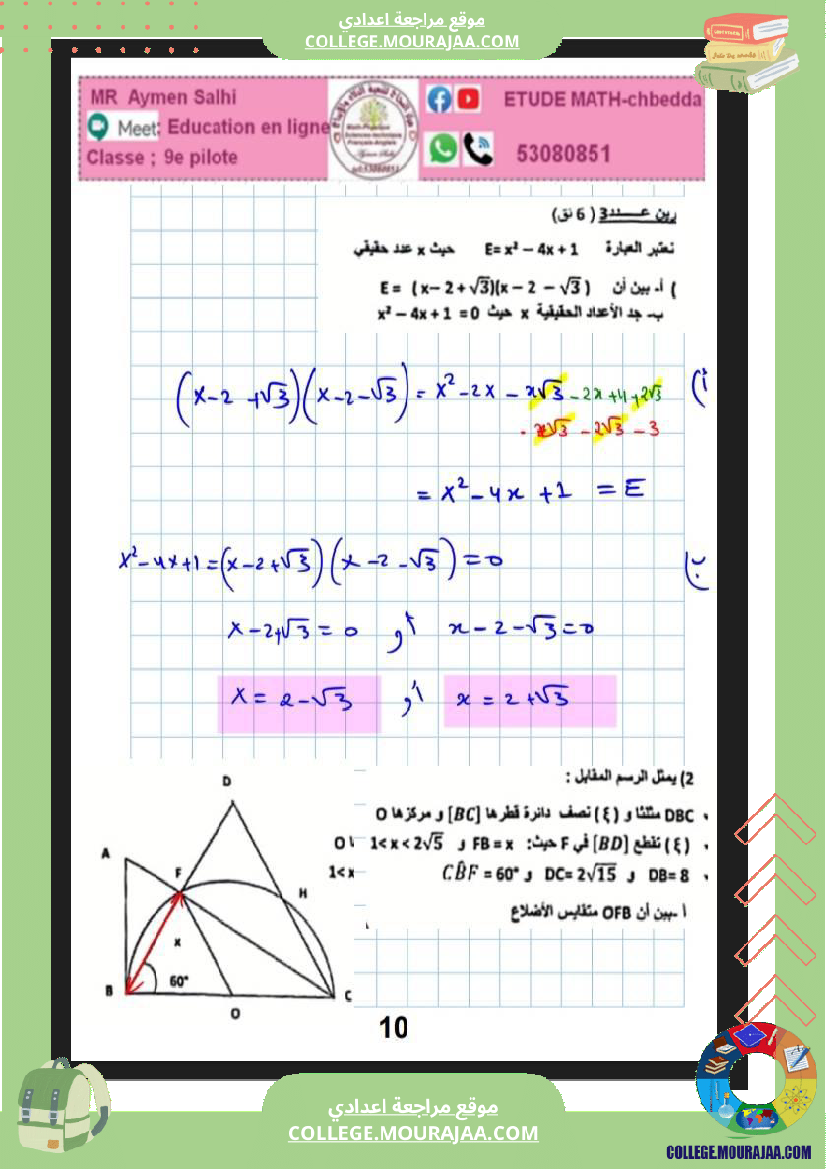 موقع مراجعة اعدادي
COLLEGE.MOURAJAA.COM
MR Aymen Salhi
Meet: Education en ligne
Classe ; 9e pilote
ETUDE MATH-chbedda
53080851
رين عـــدد3 ( 6 نق)
نعتبر العبارة E= x² – 4x + 1 حيث x عدد حقيقي
) أ- بين أن E = (x– 2 + √3)(x – 2 – √3 )
ب- جد الأعداد الحقيقية x حيث x² – 4x + 1 = 0
أ) (x-2+√3)(x-2-√3) = x² -2x - x√3 -2x+4+2√3
x√3 -2√3 -3
= x² - 4x + 1 = E
ب) x²-4x+1=(x-2+√3)(x-2-√3)=0
x-2+√3=0 أو x-2-√3=0
x = 2-√3 أو x = 2+√3
2) يمثل الرسم المقابل :
DBC مثلثا و (٤) نصف دائرة قطرها [BC] و مركزها O
(٤) تقطع [BD] في F حيث: FB = x و 1< x < 2√5 O
DB= 8 و DC= 2√15 و CB̂F = 60° 1< x
أ -بين أن OFB متقايس الأضلاع
D
A
F
H
x
60°
B
O
C
10
موقع مراجعة اعدادي
COLLEGE.MOURAJAA.COM
COLLEGE.MOURAJAA.COM